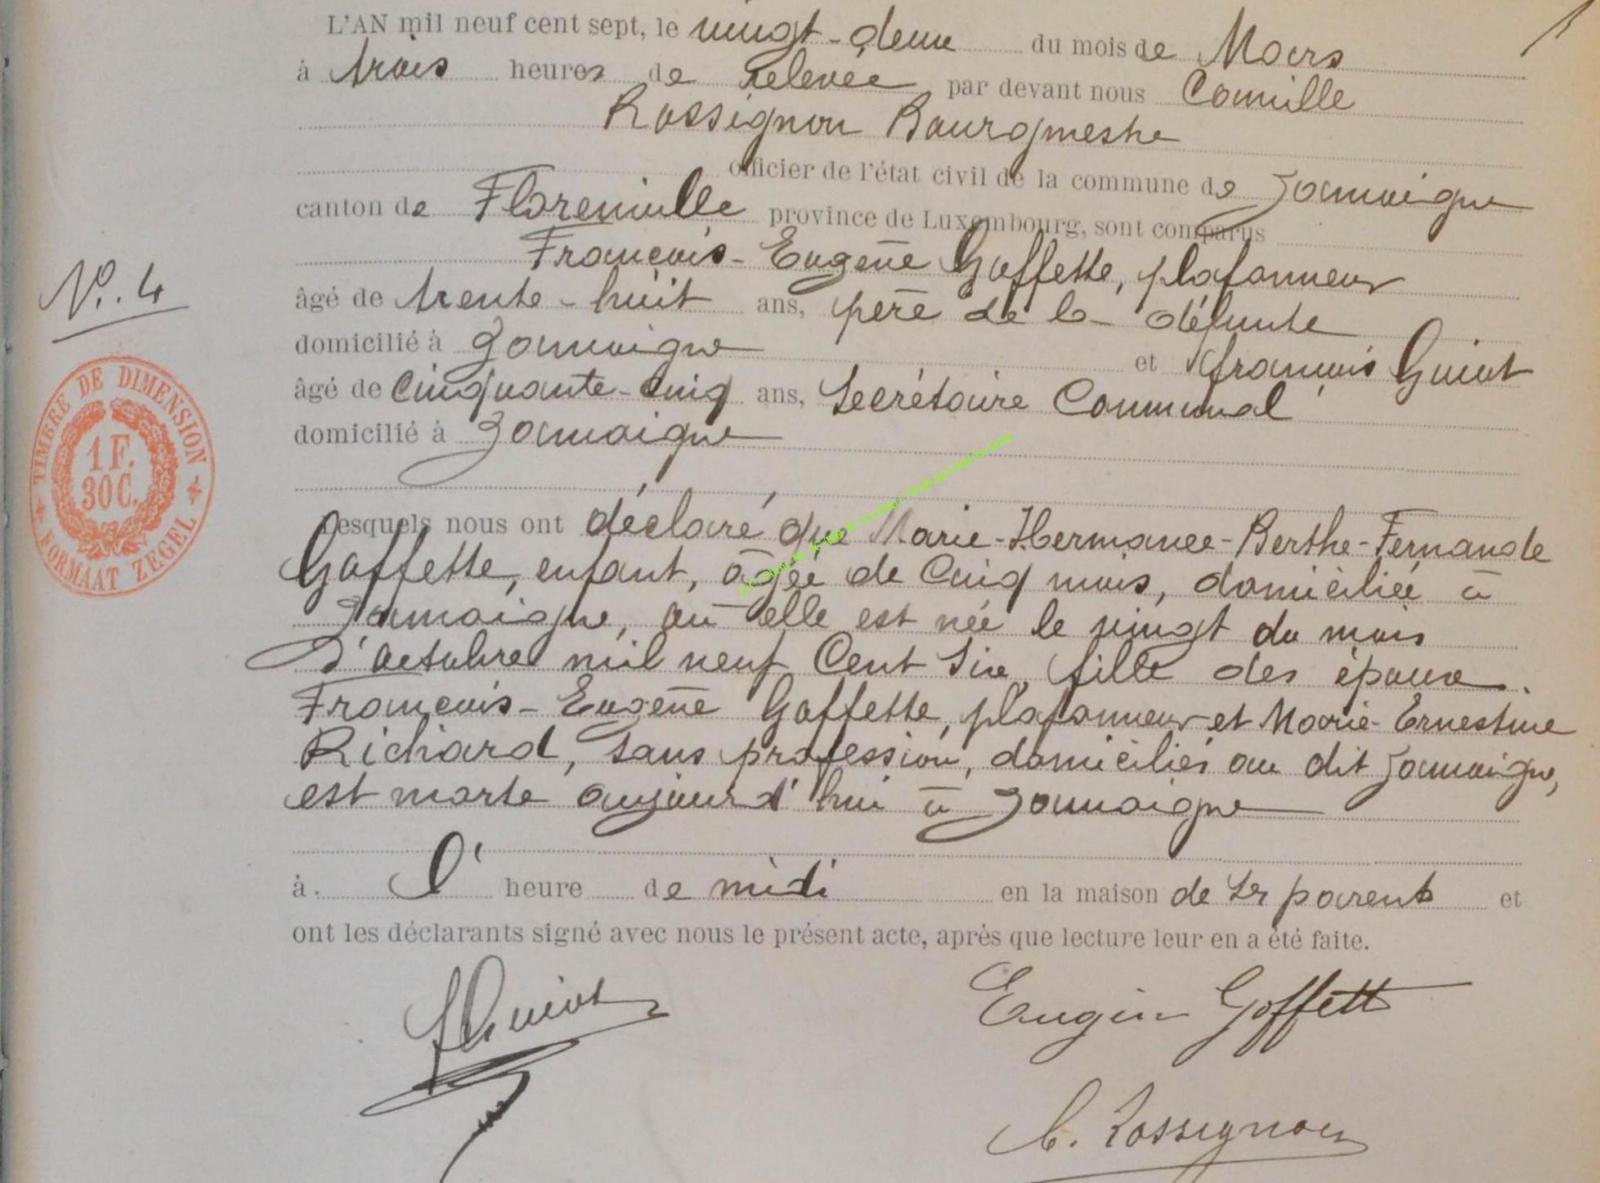 L'AN mil neuf cent sept, le vingt-deux du mois de Mars
à trois heures de relevée par devant nous Camille
Rossignon Bourgmestre
officier de l'état civil de la commune de Jamoigne
canton de Florenville province de Luxembourg, sont comparus
François-Eugène Goffette, plafonneur
âgé de trente-huit ans, père de la défunte
domicilié à Jamoigne et François Guiot
âgé de cinquante-cinq ans, Secrétaire Communal
domicilié à Jamoigne
N°. 4
TIMBRE DE DIMENSION
1 F.
30 C.
FORMAAT ZEGEL
Lesquels nous ont déclaré que Marie-Hermance-Berthe-Fernande
Goffette, enfant, âgée de Cinq mois, domiciliée à
Jamoigne, où elle est née le vingt du mois
d'octobre mil neuf Cent Six, fille des époux
François-Eugène Goffette, plafonneur et Marie-Ernestine
Richard, sans profession, domiciliés au dit Jamoigne,
est morte aujourd'hui à Jamoigne
à l' heure de midi en la maison de ses parents et
ont les déclarants signé avec nous le présent acte, après que lecture leur en a été faite.
F Guiot
Eugèn Goffett
C. Rossignon